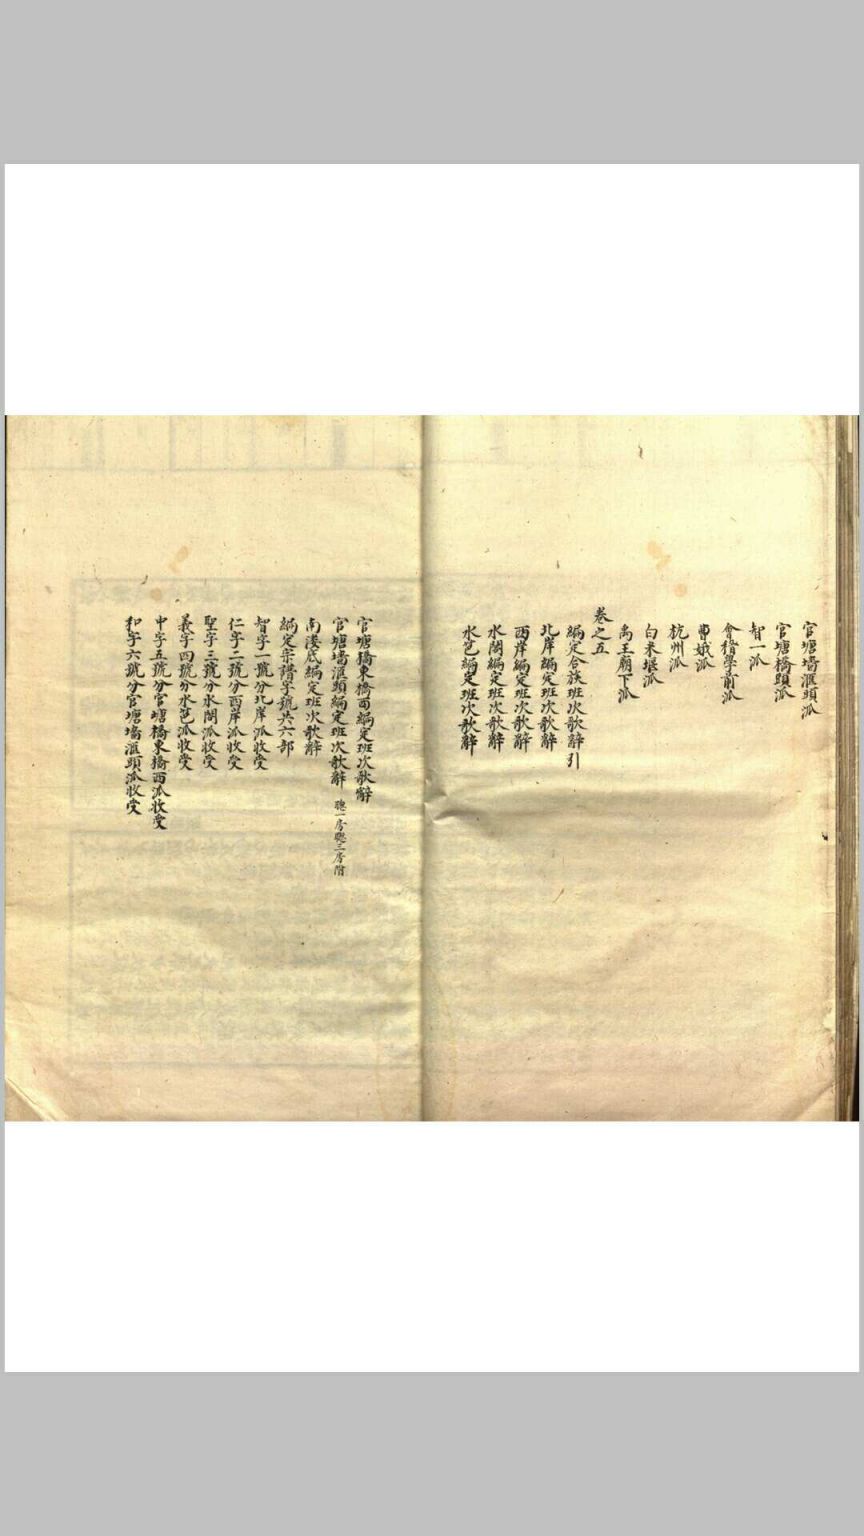 官塘墻滙頭派
官塘橋頭派
智一派
會稽學前派
曹娥派
杭州派
白米堰派
禹王廟下派
卷之五
編定合族班次歌辭引
北岸編定班次歌辭
西岸編定班次歌辭
水閣編定班次歌辭
水笆編定班次歌辭
官塘橋東橋西編定班次歌辭
官塘墻滙頭編定班次歌辭 聰一房聰三房附
南漊底編定班次歌辭
編定宗譜字號共六部
智字一號分北岸派收受
仁字二號分西岸派收受
聖字三號分水閣派收受
義字四號分水笆派收受
中字五號分官塘橋東橋西派收受
和字六號分官塘墻滙頭派收受